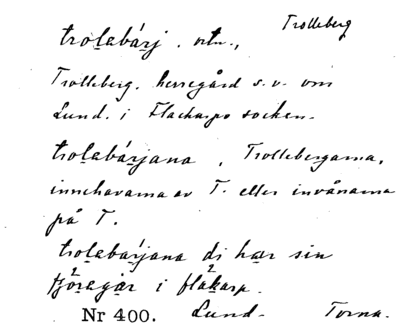 Trolleberg
trolabárj . ortn.,
Trolleberg. herregård s.v. om
Lund. i Flackarps socken.
trolabárjana , Trollebergarna,
innehavarna av T. eller invånarna
på T.
trolabárjana di har sin
i flákarp.
Nr 400. Lund. Torna.